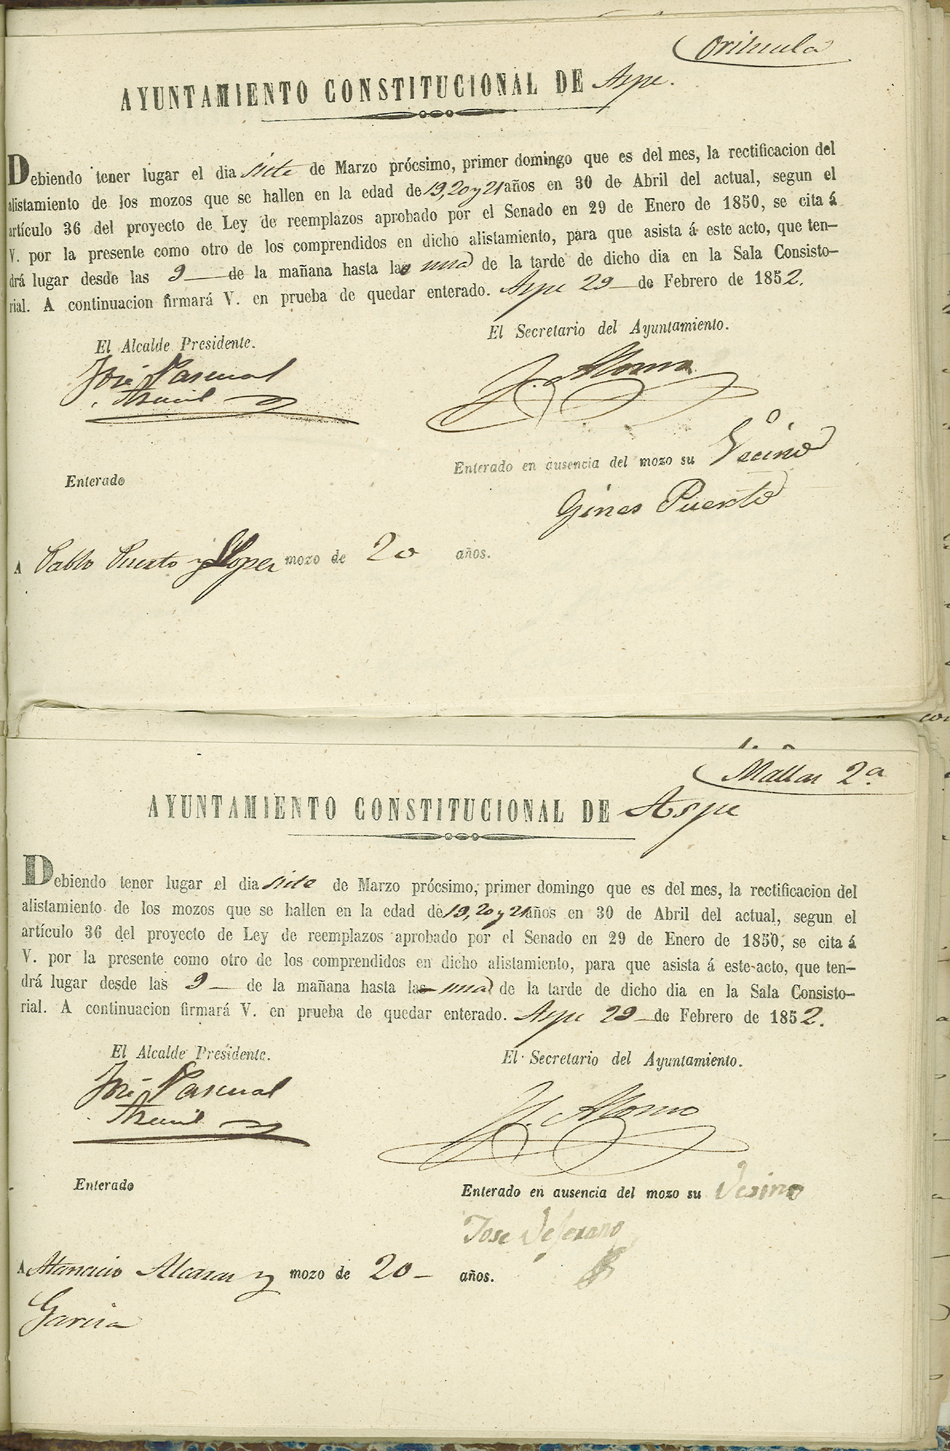 Orihuela
AYUNTAMIENTO CONSTITUCIONAL DE Aspe.
Debiendo tener lugar el dia siete de Marzo prócsimo, primer domingo que es del mes, la rectificacion del
alistamiento de los mozos que se hallen en la edad de 19, 20 y 21 años en 30 de Abril del actual, segun el
artículo 36 del proyecto de Ley de reemplazos aprobado por el Senado en 29 de Enero de 1850, se cita á
V. por la presente como otro de los comprendidos en dicho alistamiento, para que asista á este acto, que ten-
drá lugar desde las 9 de la mañana hasta la una de la tarde de dicho dia en la Sala Consisto-
rial. A continuacion firmará V. en prueba de quedar enterado. Aspe 29 de Febrero de 1852.
El Alcalde Presidente.
El Secretario del Ayuntamiento.
José Pascual
J. Alonso
Enterado
Enterado en ausencia del mozo su Vecino
Gines Puerto
A Pablo Puerto y Lopez mozo de 20 años.
Mallas 2a
AYUNTAMIENTO CONSTITUCIONAL DE Aspe
Debiendo tener lugar el dia siete de Marzo prócsimo, primer domingo que es del mes, la rectificacion del
alistamiento de los mozos que se hallen en la edad de 19, 20 y 21 años en 30 de Abril del actual, segun el
artículo 36 del proyecto de Ley de reemplazos aprobado por el Senado en 29 de Enero de 1850, se cita á
V. por la presente como otro de los comprendidos en dicho alistamiento, para que asista á este acto, que ten-
drá lugar desde las 9 de la mañana hasta la una de la tarde de dicho dia en la Sala Consisto-
rial. A continuacion firmará V. en prueba de quedar enterado. Aspe 29 de Febrero de 1852.
El Alcalde Presidente.
El Secretario del Ayuntamiento.
José Pascual
J. Alonso
Enterado
Enterado en ausencia del mozo su Vesino
Jose
A Atanacio Alcaraz y mozo de 20 años.
Garcia